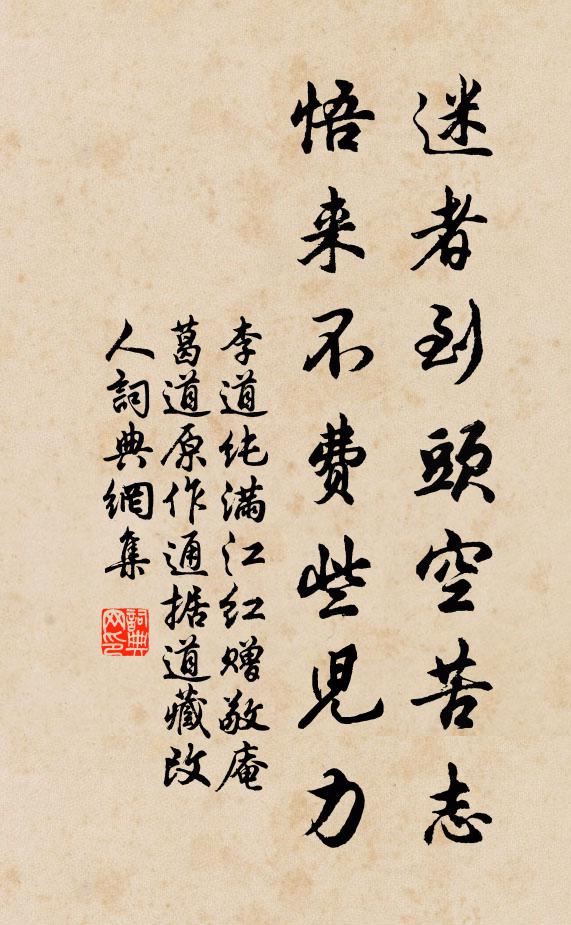 迷者到頭空苦志
悟来不費些児力
李道纯满江红赠敬庵
葛道原作通据道藏改
人詞典網集
詞典
网印